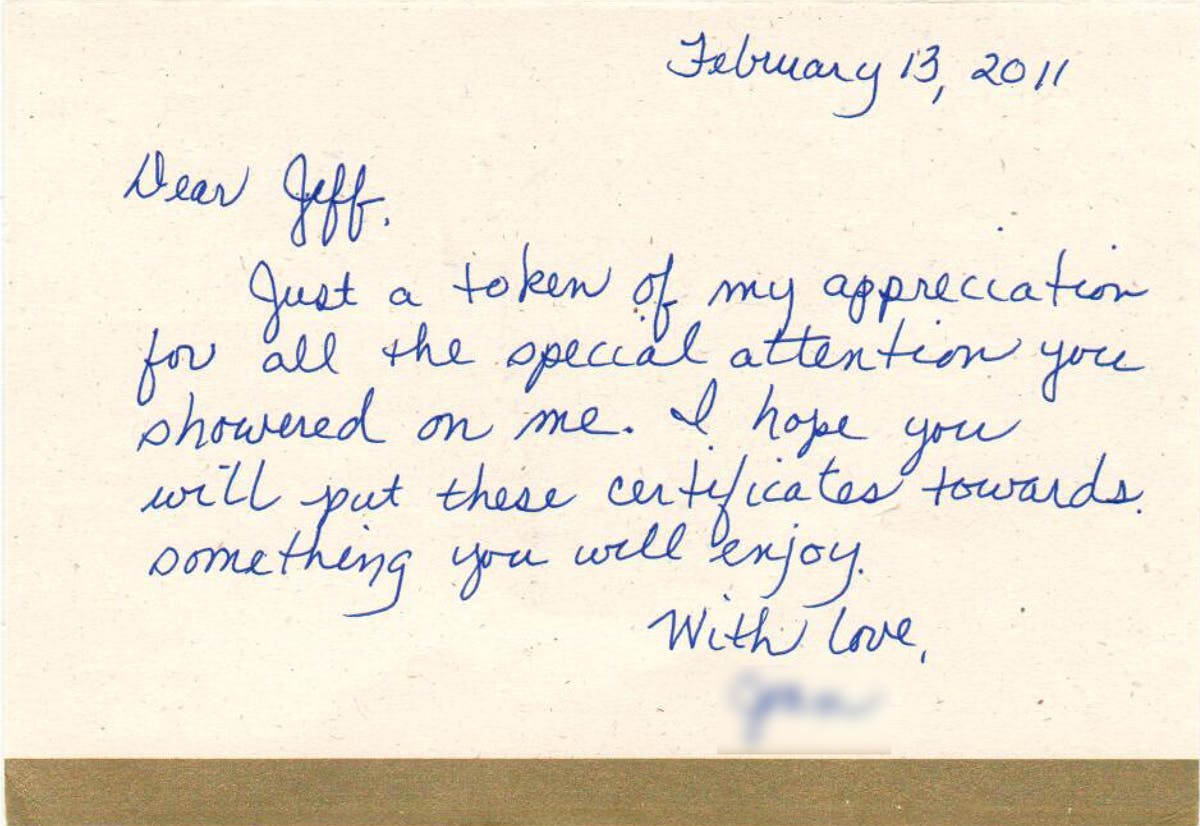 February 13, 2011
Dear Jeff,
Just a token of my appreciation
for all the special attention you
showered on me. I hope you
will put these certificates towards
something you will enjoy.
With love,